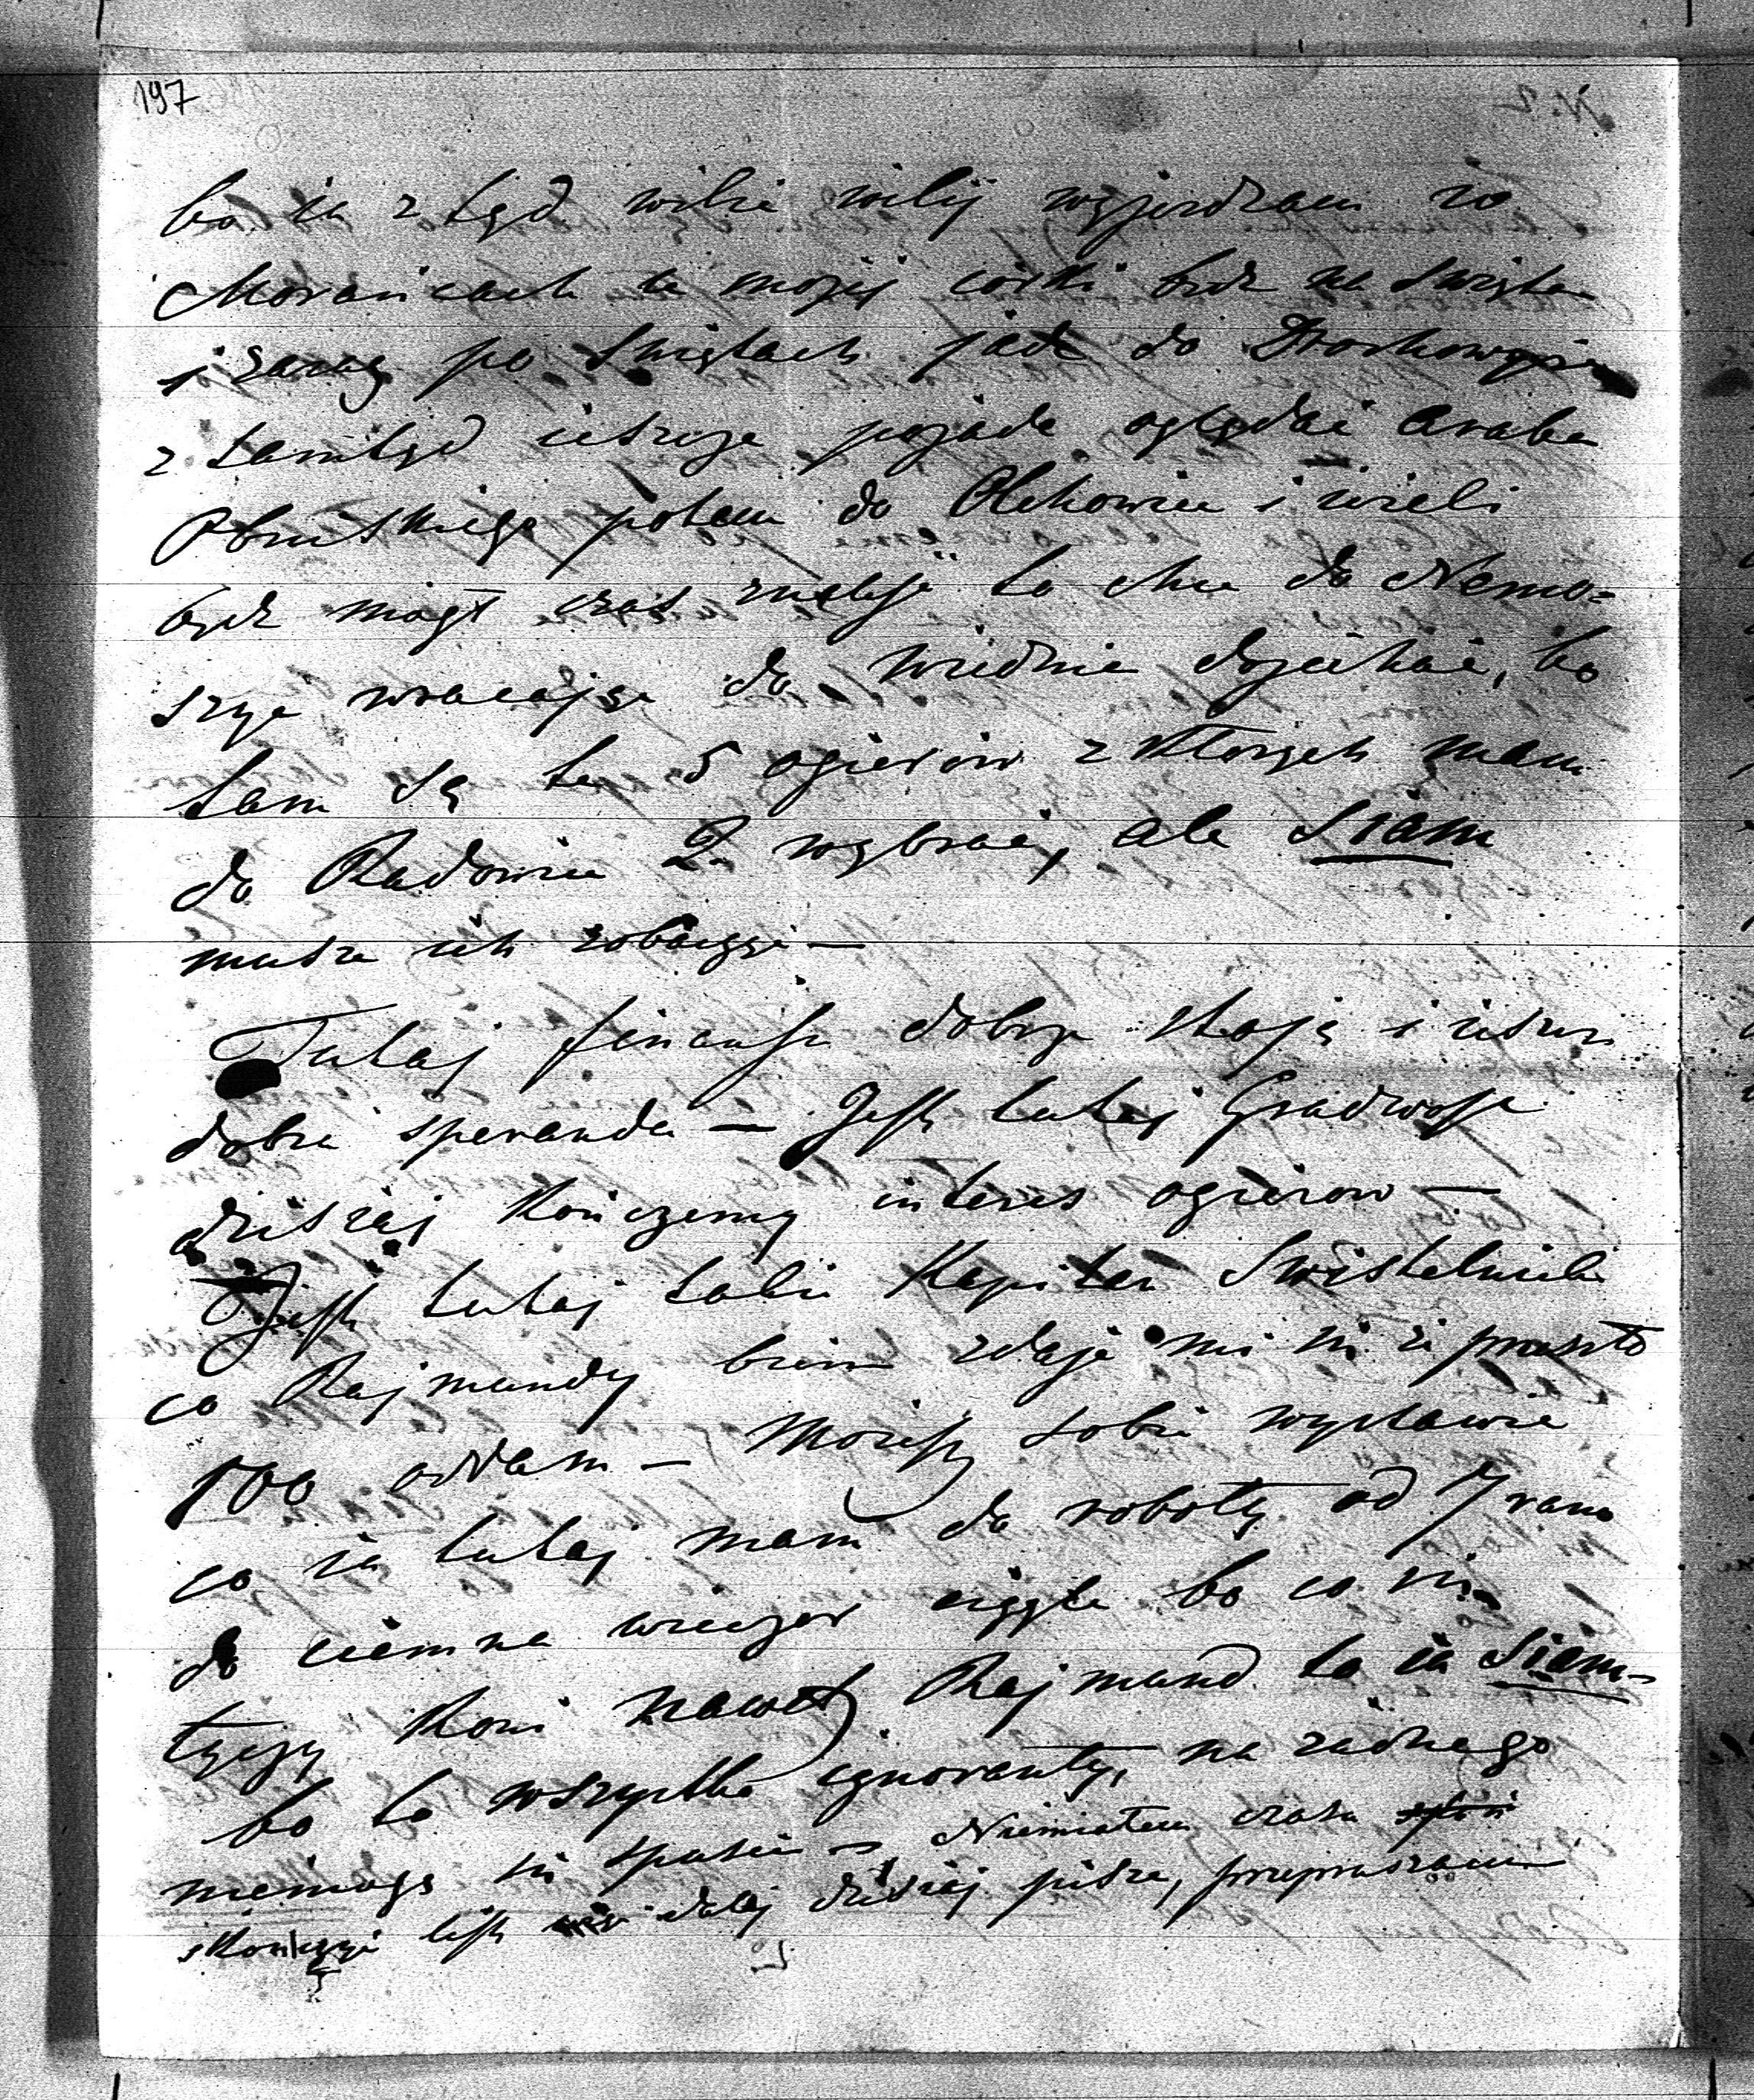 197
bo ja z tąd wilię wilij wyjerdzam w
Moranicach u mojej córki będę na święta
i zaraz po świętach jadę do Drochowyża
z tamtąd jeszcze pojadę oglądać araba
potem do Olchowiec i jeżeli
będę mógł czas znaleść to chcę do Nemo=
szyc wracając do Wiednia dojechać, bo
tam są te 5 ogierów z których mam
do Radowiec 2 wybrać, ale siam
muszę ich zobaczyć —
Tutaj finanse dobrze stoją i jeszcze
dobra speranda — Jest tutaj Gradwohl
dzisiaj kończemy interes ogierow —
Jest tutaj także Kapitan Swistelnicki
co Rajmundy brein zdaje mi się że prosto
500 oddam — Możesz sobie wystawić
co ja tutaj mam do roboty od 7 rano
do ciemna wieczor ciągle bo co się
tyczy koni nawet Rajmund to ja siam
bo to wszystko ignoranty, na żadnego
niemogę się spuścić — Niemiałem czasu
skończyć list dalej dzisiaj piszę, przepraszam